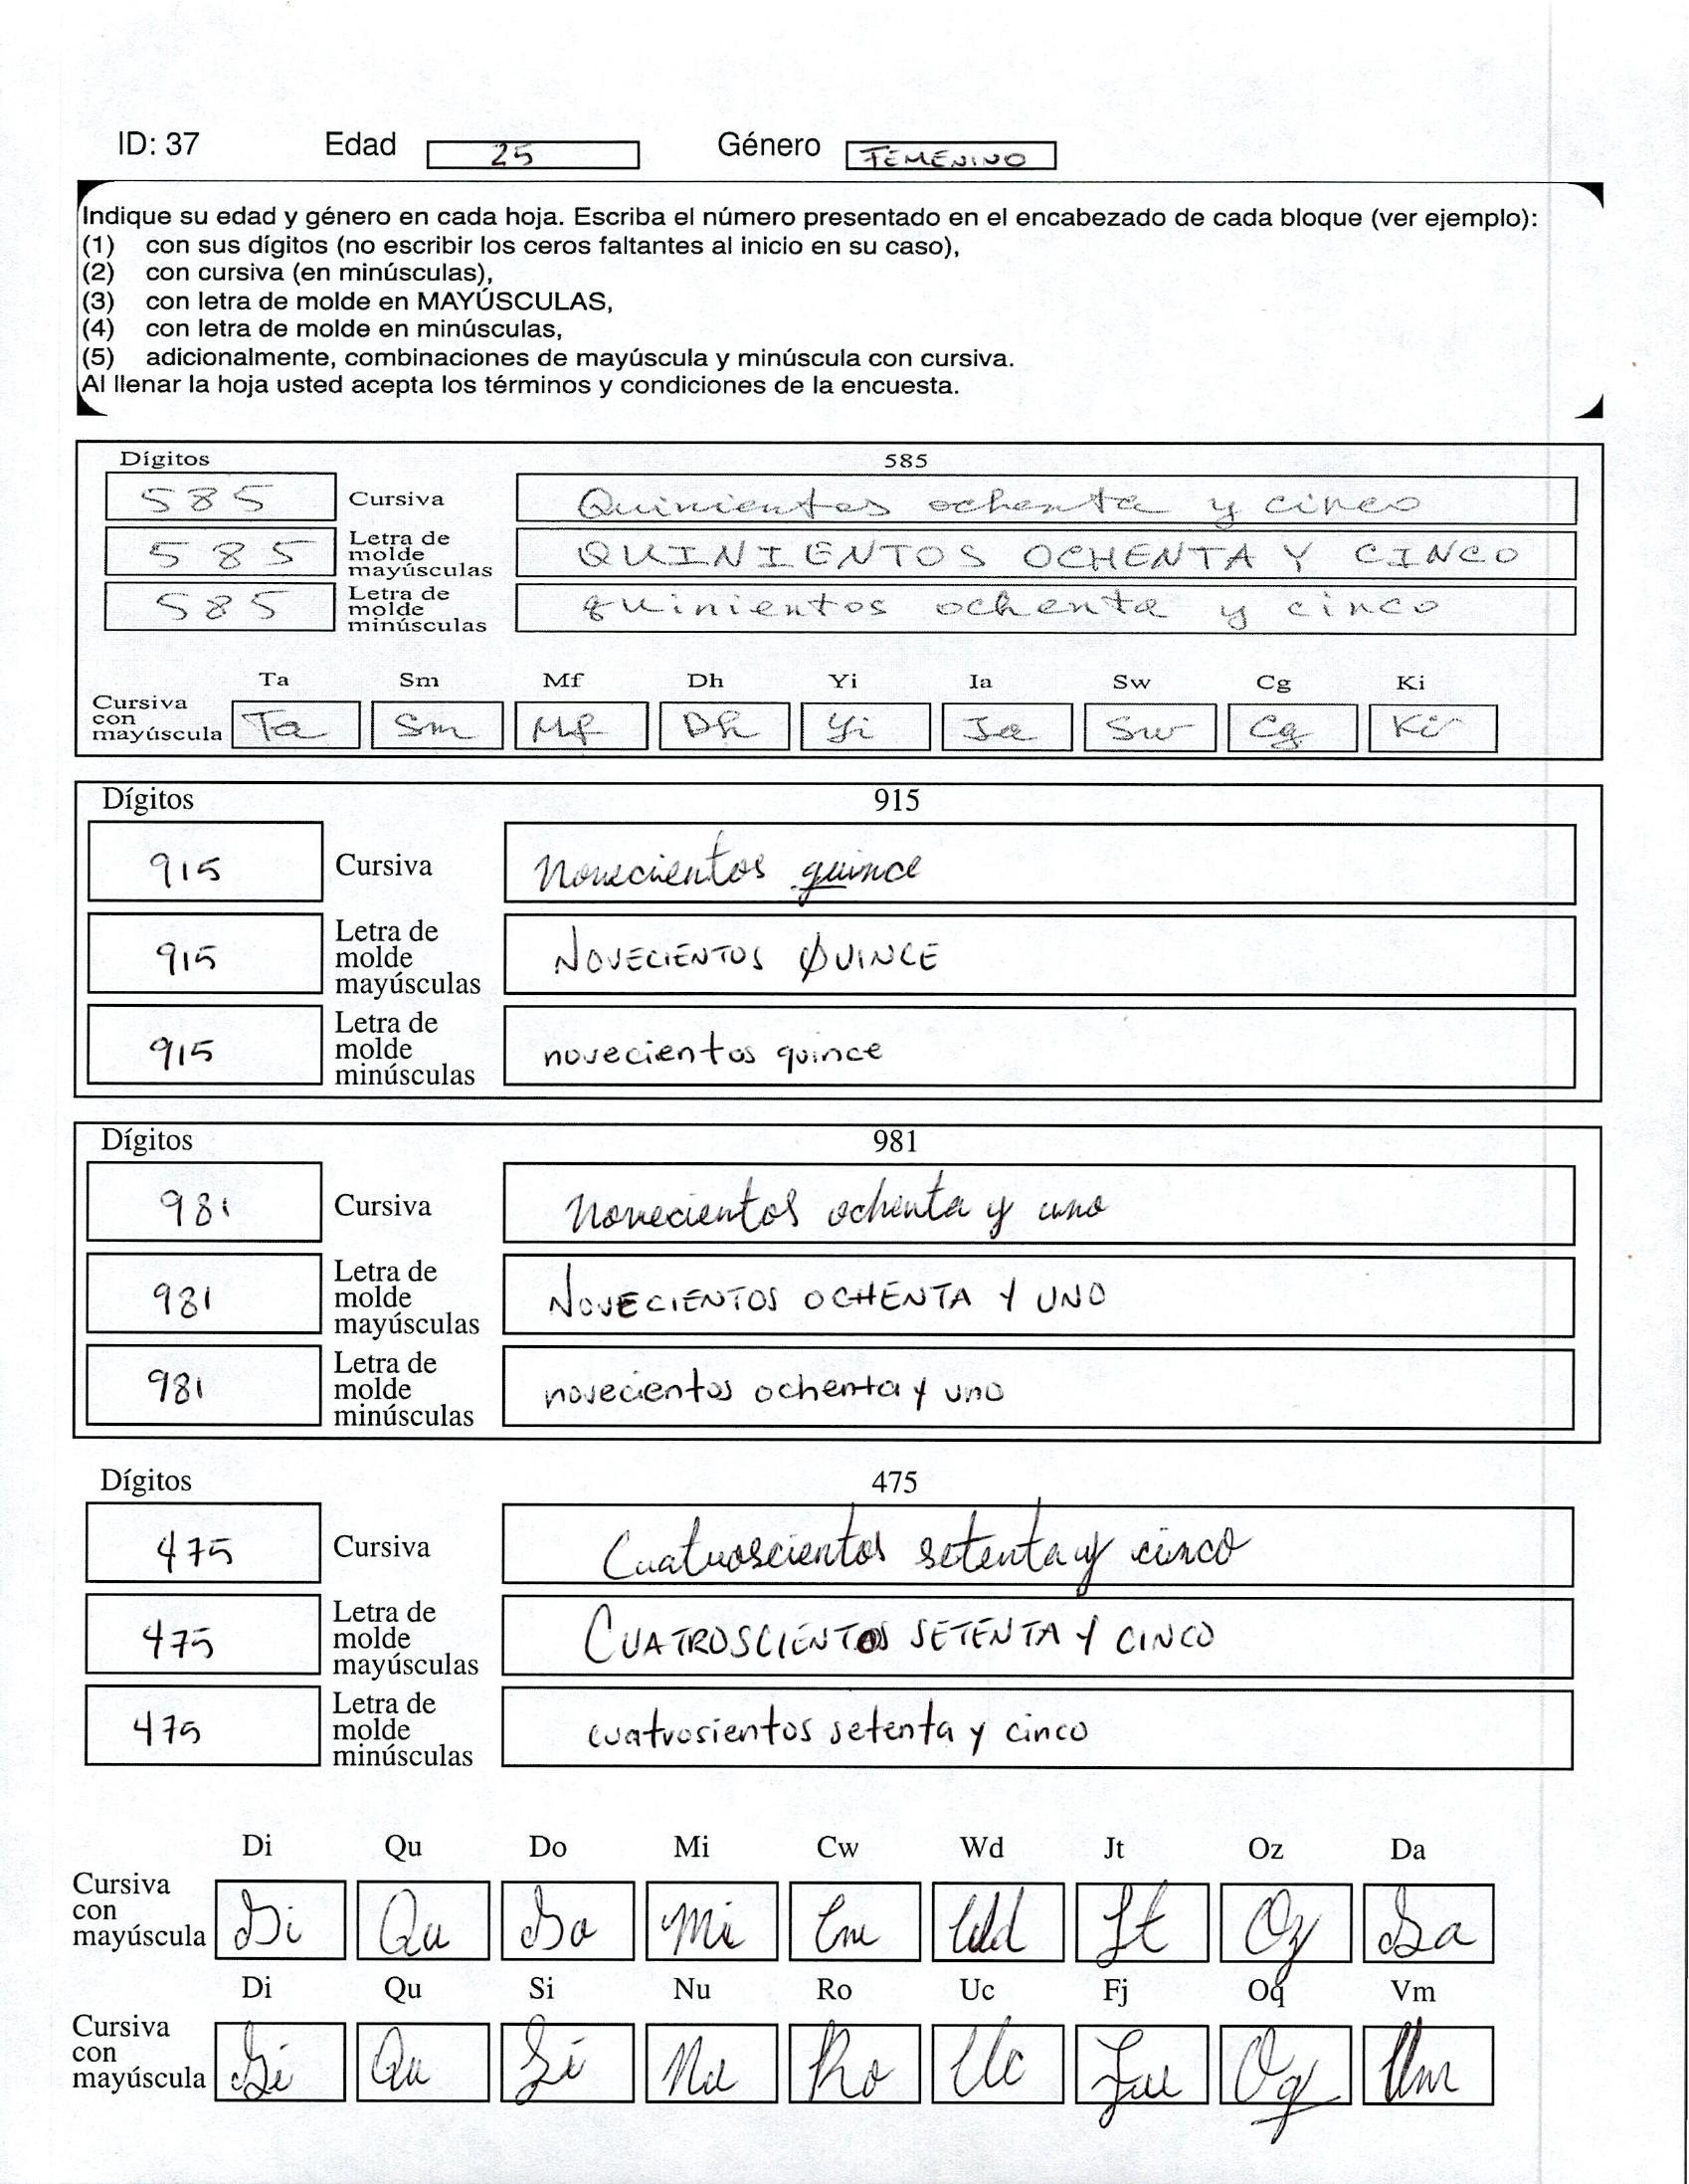 ID: 37 Edad 25 Género FEMENINO
Indique su edad y género en cada hoja. Escriba el número presentado en el encabezado de cada bloque (ver ejemplo):
(1) con sus dígitos (no escribir los ceros faltantes al inicio en su caso),
(2) con cursiva (en minúsculas),
(3) con letra de molde en MAYÚSCULAS,
(4) con letra de molde en minúsculas,
(5) adicionalmente, combinaciones de mayúscula y minúscula con cursiva.
Al llenar la hoja usted acepta los términos y condiciones de la encuesta.
Dígitos 585
585 Cursiva Quinientos ochenta y cinco
585 Letra de molde mayúsculas QUINIENTOS OCHENTA Y CINCO
585 Letra de molde minúsculas quinientos ochenta y cinco
Ta Sm Mf Dh Yi Ia Sw Cg Ki
Cursiva con mayúscula Ta Sm Mf Dh Yi Ia Sw Cg Ki
Dígitos 915
915 Cursiva Novecientos quince
915 Letra de molde mayúsculas NOVECIENTOS QUINCE
915 Letra de molde minúsculas novecientos quince
Dígitos 981
981 Cursiva Novecientos ochenta y uno
981 Letra de molde mayúsculas NOVECIENTOS OCHENTA Y UNO
981 Letra de molde minúsculas novecientos ochenta y uno
Dígitos 475
475 Cursiva Cuatroscientos setenta y cinco
475 Letra de molde mayúsculas CUATROSCIENTOS SETENTA Y CINCO
475 Letra de molde minúsculas cuatrosientos setenta y cinco
Di Qu Do Mi Cw Wd Jt Oz Da
Cursiva con mayúscula Di Qu Do Mi Cw Wd Jt Oz Da
Di Qu Si Nu Ro Uc Fj Oq Vm
Cursiva con mayúscula Di Qu Si Nu Ro Uc Oq Vm